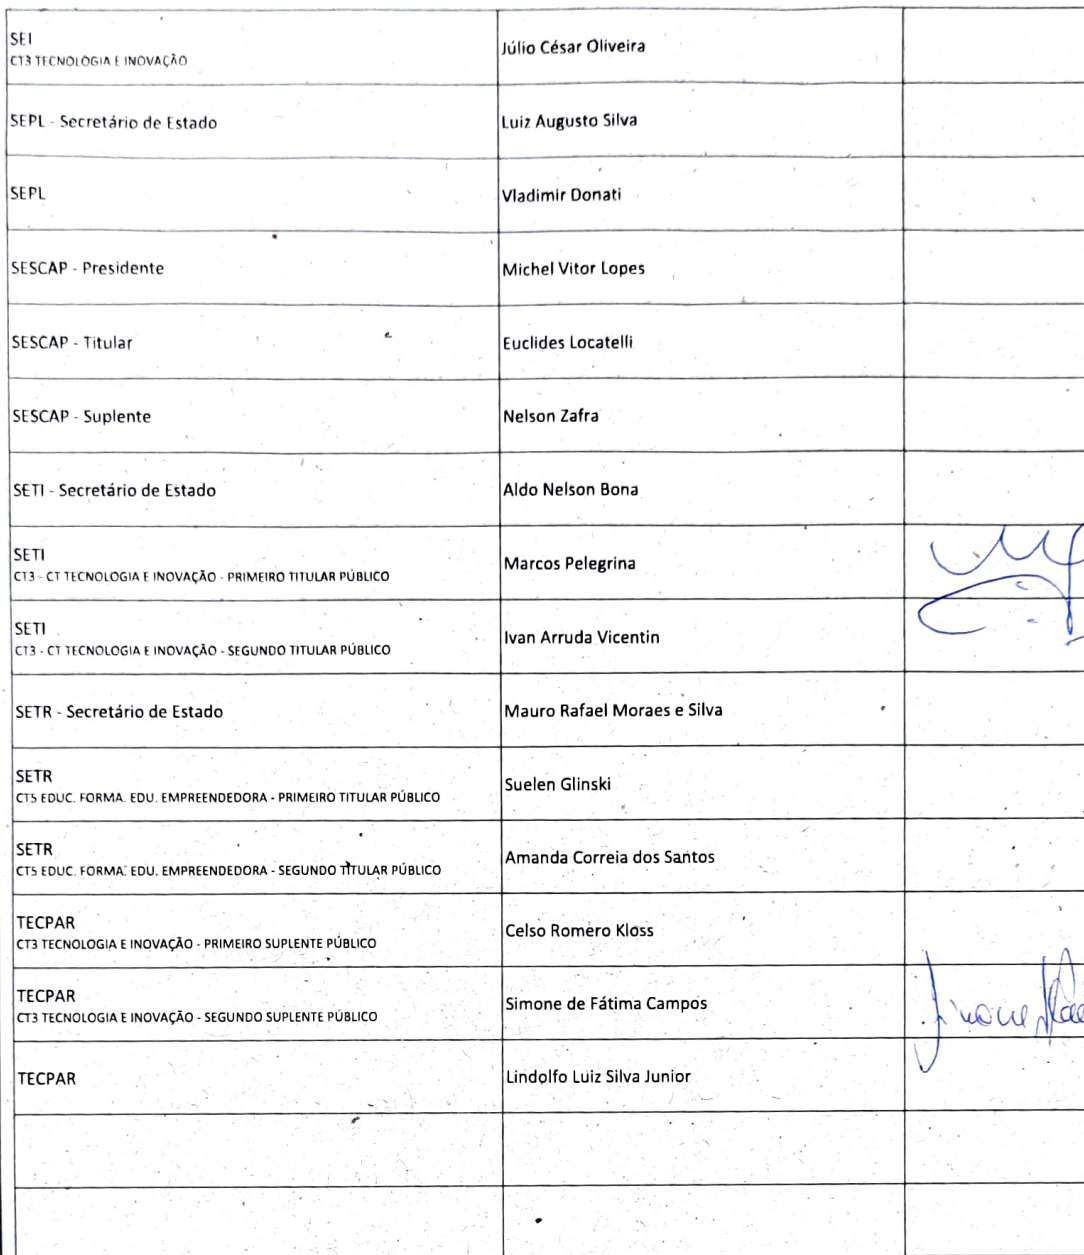 SEI
CT3 TECNOLOGIA E INOVAÇÃO
Júlio César Oliveira
SEPL - Secretário de Estado
Luiz Augusto Silva
SEPL
Vladimir Donati
SESCAP - Presidente
Michel Vitor Lopes
SESCAP - Titular
Euclides Locatelli
SESCAP - Suplente
Nelson Zafra
SETI - Secretário de Estado
Aldo Nelson Bona
SETI
CT3 - CT TECNOLOGIA E INOVAÇÃO - PRIMEIRO TITULAR PÚBLICO
Marcos Pelegrina
SETI
CT3 - CT TECNOLOGIA E INOVAÇÃO - SEGUNDO TITULAR PÚBLICO
Ivan Arruda Vicentin
SETR - Secretário de Estado
Mauro Rafael Moraes e Silva
SETR
CT5 EDUC. FORMA. EDU. EMPREENDEDORA - PRIMEIRO TITULAR PÚBLICO
Suelen Glinski
SETR
CT5 EDUC. FORMA. EDU. EMPREENDEDORA - SEGUNDO TITULAR PÚBLICO
Amanda Correia dos Santos
TECPAR
CT3 TECNOLOGIA E INOVAÇÃO - PRIMEIRO SUPLENTE PÚBLICO
Celso Romero Kloss
TECPAR
CT3 TECNOLOGIA E INOVAÇÃO - SEGUNDO SUPLENTE PÚBLICO
Simone de Fátima Campos
Simone
TECPAR
Lindolfo Luiz Silva Junior